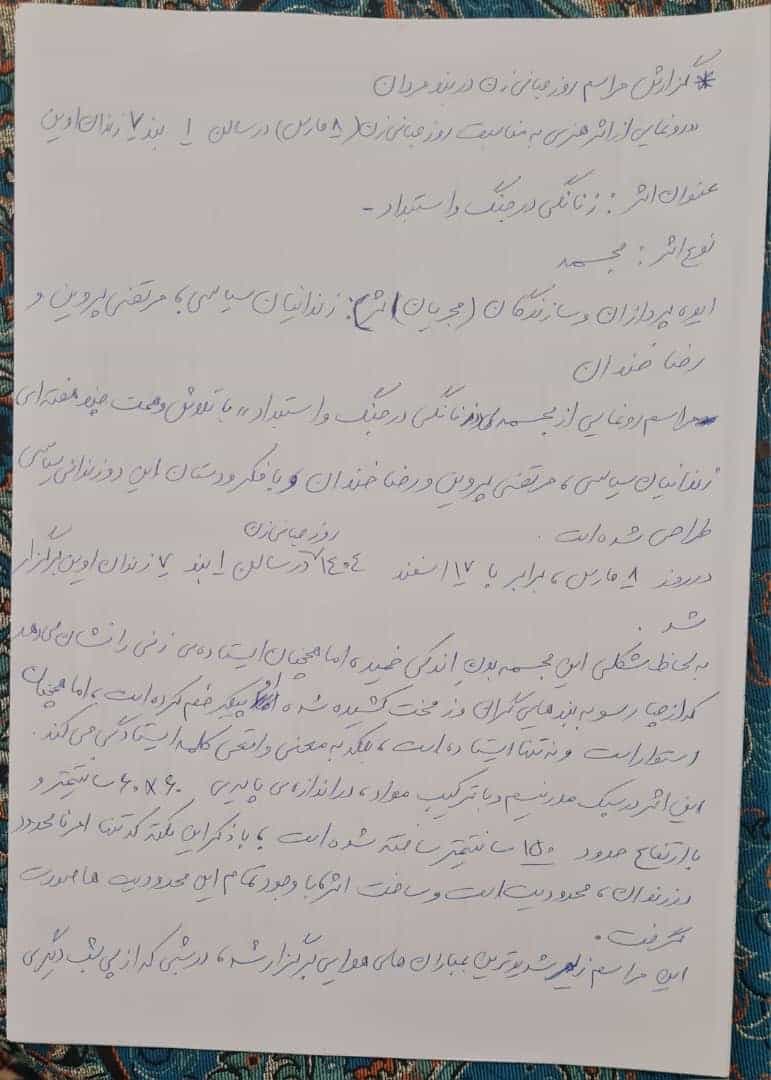 * گزارش مراسم روز جهانی زن در بند مردان
رونمایی از اثر هنری به مناسبت روز جهانی زن (۸ مارس) در سالن ۱ بند ۷ زندان اوین
عنوان اثر: زنانگی در جنگ و استبداد -
نوع اثر: مجسمه
ایده پردازان و سازندگان (مجریان) اثر: زندانیان سیاسی، مرتضی پروین و
رضا خندان
مراسم رونمایی از مجسمه‌ی «زنانگی در جنگ و استبداد» با تلاش و همت چند هفته‌ای
زندانیان سیاسی، مرتضی پروین و رضا خندان و با فکر و دستان این دو زندانی سیاسی
طراحی شده است.
روز جهانی زن
در روز ۸ مارس، برابر با ۱۷ اسفند ۱۴۰۴ در سالن ۱ بند ۷ زندان اوین برگزار
شد.
به لحاظ شکلی این مجسمه بدنِ اندکی خمیده، اما همچنان ایستاده‌ی زنی را نشان می‌دهد
که از چهار سو به بندهایی گران و زمخت کشیده شده پیکر خم کرده است، اما همچنان
استوار است و نه تنها ایستاده است، بلکه به معنی واقعی کلمه ایستادگی می کند.
این اثر در سبک مدرنیسم و با ترکیب مواد، در اندازه‌ی پایه‌ی ۶۰×۶۰ سانتیمتر و
با ارتفاع حدود ۱۵۰ سانتیمتر ساخته شده است، با ذکر این نکته که تنها امر نامحدود
در زندان، محدودیت است و ساخت اثر، با وجود تمام این محدودیت ها صورت
گرفت.
این مراسم زیر شدیدترین بمباران های هوایی برگزار شد، در شبی که از پی شب دیگری